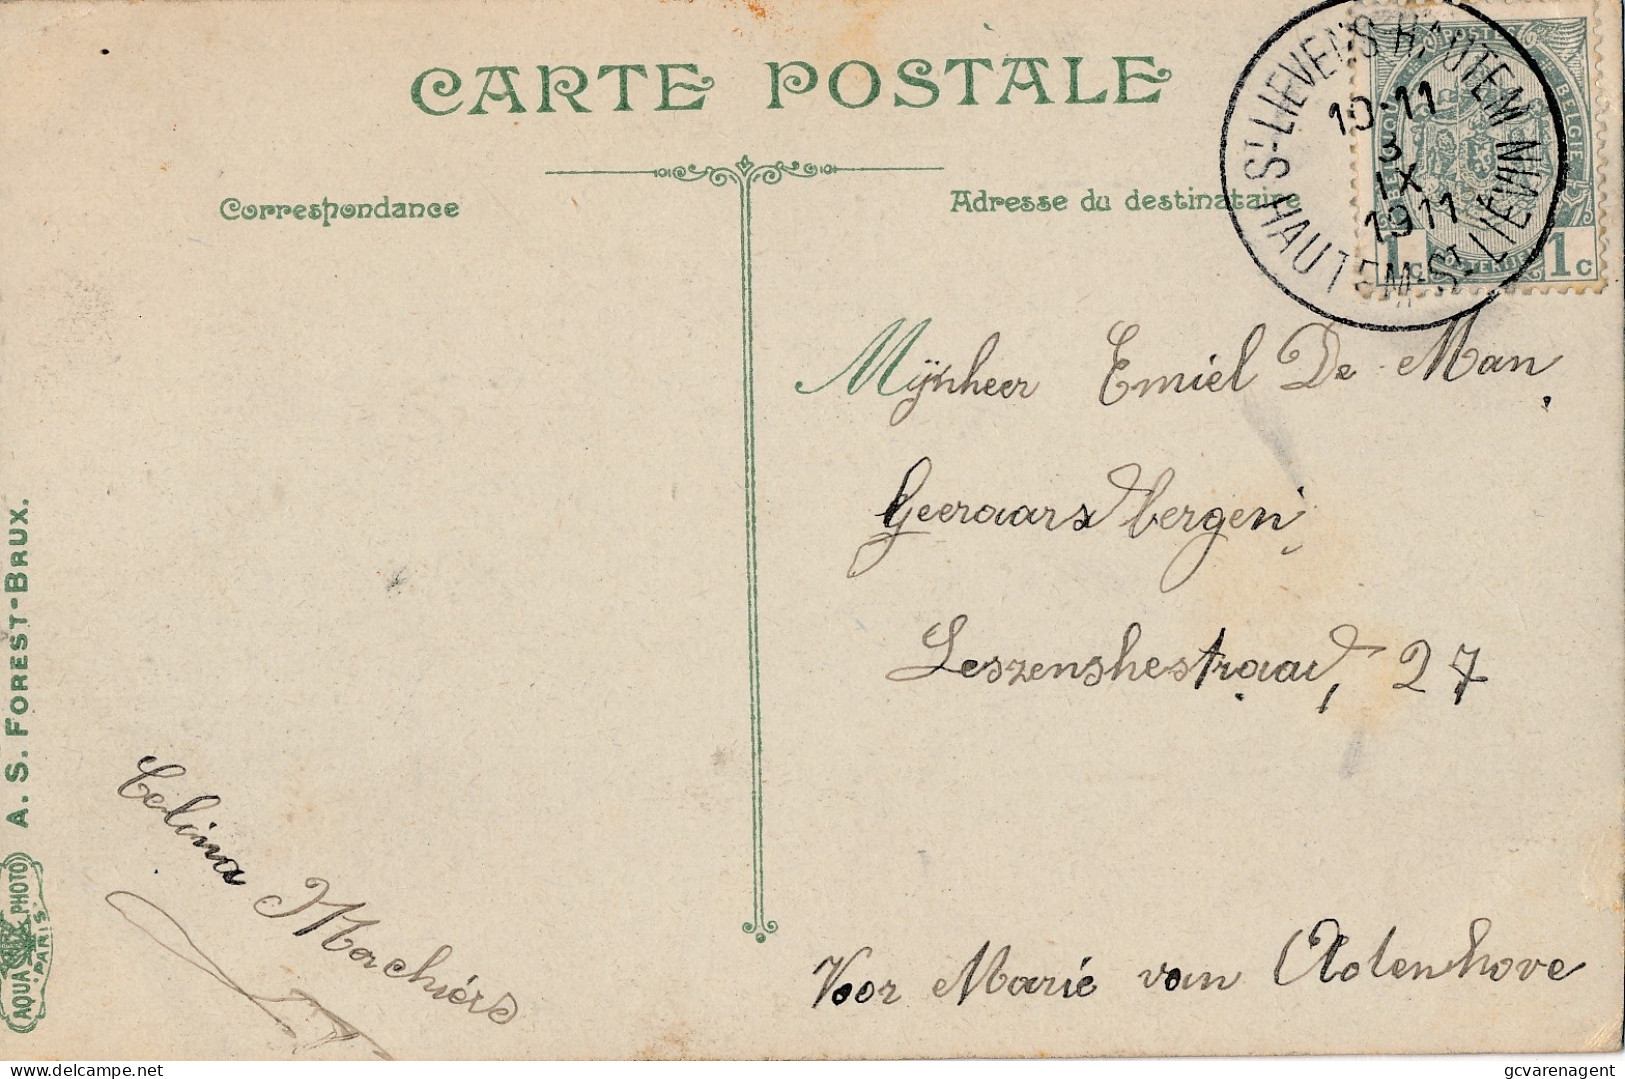 CARTE POSTALE
Correspondance
Adresse du destinataire
ST-LIEVENS-HAUTEM
HAUTEM-ST-LIÉVIN
10-11
3
IX
1911
POSTES
1c 1c
Mijnheer Emiel De Man,
Geeraardsbergen,
Leszenshestraat, 27
Voor Marie van Aolenhove
Celina Marchiers
A. S. FOREST-BRUX.
AQUA PHOTO
PARIS
gcvarenagent